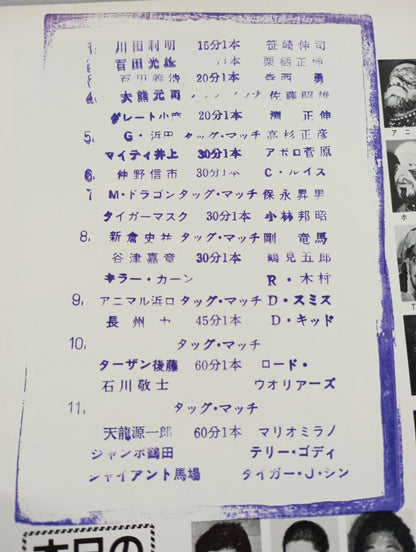 1. 川田利明 15分1本 笹崎伸司
2 百田光雄 〃1本 栗栖正伸
3 百田義浩 20分1本 寺西 勇
4. 大熊元司 佐藤昭雄
グレート小鹿 20分1本 渕 正伸
5. G・浜田 タッグ・マッチ 高杉正彦
マイティ井上 30分1本 アポロ菅原
6. 仲野信市 30分1本 C・ルイス
7 M・ドラゴン タッグ・マッチ 保永昇男
タイガーマスク 30分1本 小林邦昭
8. 新倉史祐 タッグ・マッチ 剛 竜馬
谷津嘉章 30分1本 鶴見五郎
キラー・カーン R・木村
9. アニマル浜口 タッグ・マッチ D・スミス
長州 力 45分1本 D・キッド
10. タッグ・マッチ
ターザン後藤 60分1本 ロード・
石川敬士 ウオリアーズ
11. タッグ・マッチ
天龍源一郎 60分1本 マリオミラノ
ジャンボ鶴田 テリー・ゴディ
ジャイアント馬場 タイガー・J・シン
本日の